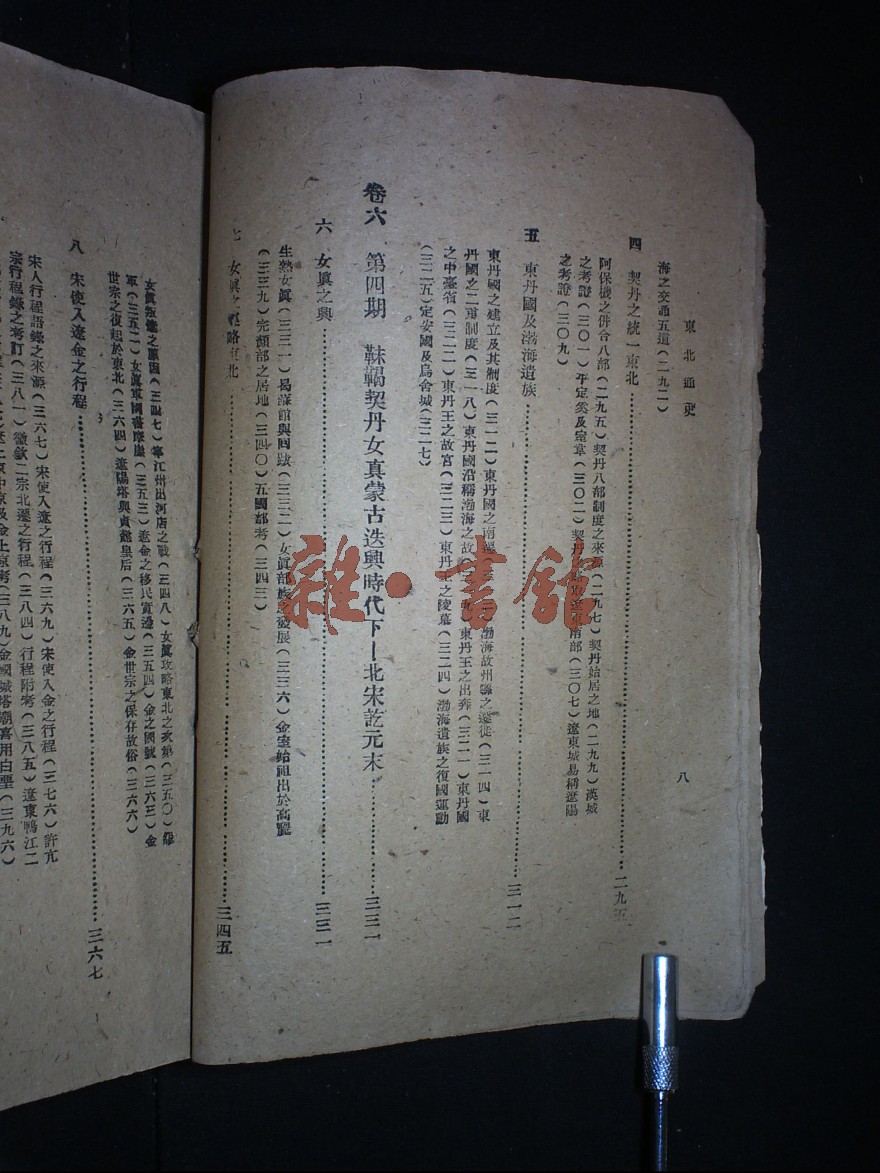 東北通史
八
海之交通五道(二九二)
四　契丹之統一東北……二九五
阿保機之併合八部(二九五)契丹八部制度之來源(二九七)契丹始居之地(二九九)漢城
之考證(三〇一)平定奚及室韋(三〇二)契丹 南部(三〇七)遼東城易稱遼陽
之考證(三〇九)
五　東丹國及渤海遺族……三一二
東丹國之建立及其制度(三一二)東丹國之南遷 渤海故州縣之遷徙(三一四)東
丹國之二重制度(三一八)東丹國沿稱渤海之故 東丹王之出奔(三二一)東丹國
之中臺省(三二二)東丹王之故宮(三二三)東丹王之陵墓(三二四)渤海遺族之復國運動
(三二五)定安國及烏舍城(三二七)
卷六　第四期　靺鞨契丹女真蒙古迭興時代下—北宋訖元末……三三一
六　女眞之興……三三一
生熟女眞(三三一)曷蘇館與回跋(三三二)女眞部族之發展(三三六)金室始祖出於高麗
(三三九)完顏部之居地(三四〇)五國部考(三四三)
七　女眞之經略東北……三四五
女眞叛遼之原因(三四七)寧江州出河店之戰(三四八)女眞攻略東北之次第(三五〇)
軍(三五一)女眞軍國 摩崖(三五三)遼金之移民實邊(三五四)金之國號(三六三)金
世宗之復起於東北(三六四)遼陽塔與貞懿皇后(三六五)金世宗之保存故俗(三六六)
八　宋使入遼金之行程……三六七
宋人行程語錄之來源(三六七)宋使入遼之行程(三六九)宋使入金之行程(三七六)許亢
宗行程錄之考訂(三八一)徽欽二宗北遷之行程(三八四)行程附考(三八五)遼東鴨江二
上京中京及金上京考(三八九)金國城塔廟喜用白堊(三九六)
雜·書館